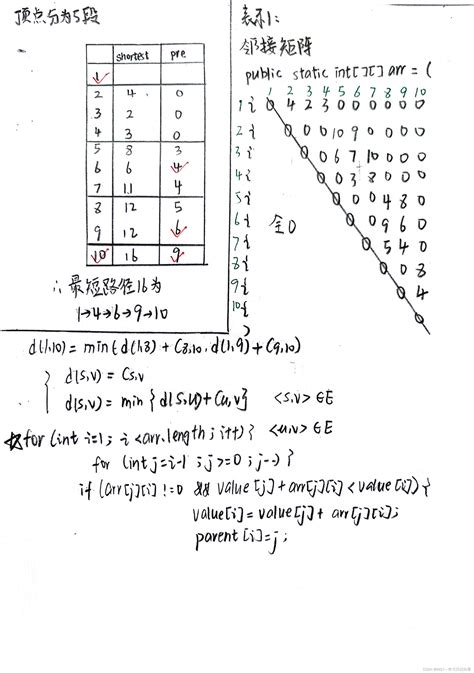 顶点分为5段
shortest pre
1
2 4 0
3 2 0
4 3 0
5 8 3
6 6 4
7 11 4
8 12 5
9 12 6
10 16 9
∴最短路径16为
1→4→6→9→10
表示1:
邻接矩阵
public static int[][] arr = {
1 2 3 4 5 6 7 8 9 10
1 { 0 4 2 3 0 0 0 0 0 0
2 { 0 0 0 10 9 0 0 0 0
3 { 0 0 6 7 10 0 0 0
4 { 0 0 3 8 0 0 0
5 { 0 0 0 4 8 0
6 { 0 0 9 6 0
7 { 0 5 4 0
8 { 0 0 8
9 { 0 4
10 { 0
全0
}
d(1,10) = min{d(1,8) + C8,10, d(1,9) + C9,10}
d(s,v) = Cs,v
d(s,v) = min {d(s,u) + Cu,v} <s,v>∈E
for (int i=1; i<arr.length; i++) { <u,v>∈E
for (int j=i-1; j>=0; j--) {
if (arr[j][i] !=0 && value[j] + arr[j][i] < value[i]) {
value[i] = value[j] + arr[j][i];
parent[i] = j;